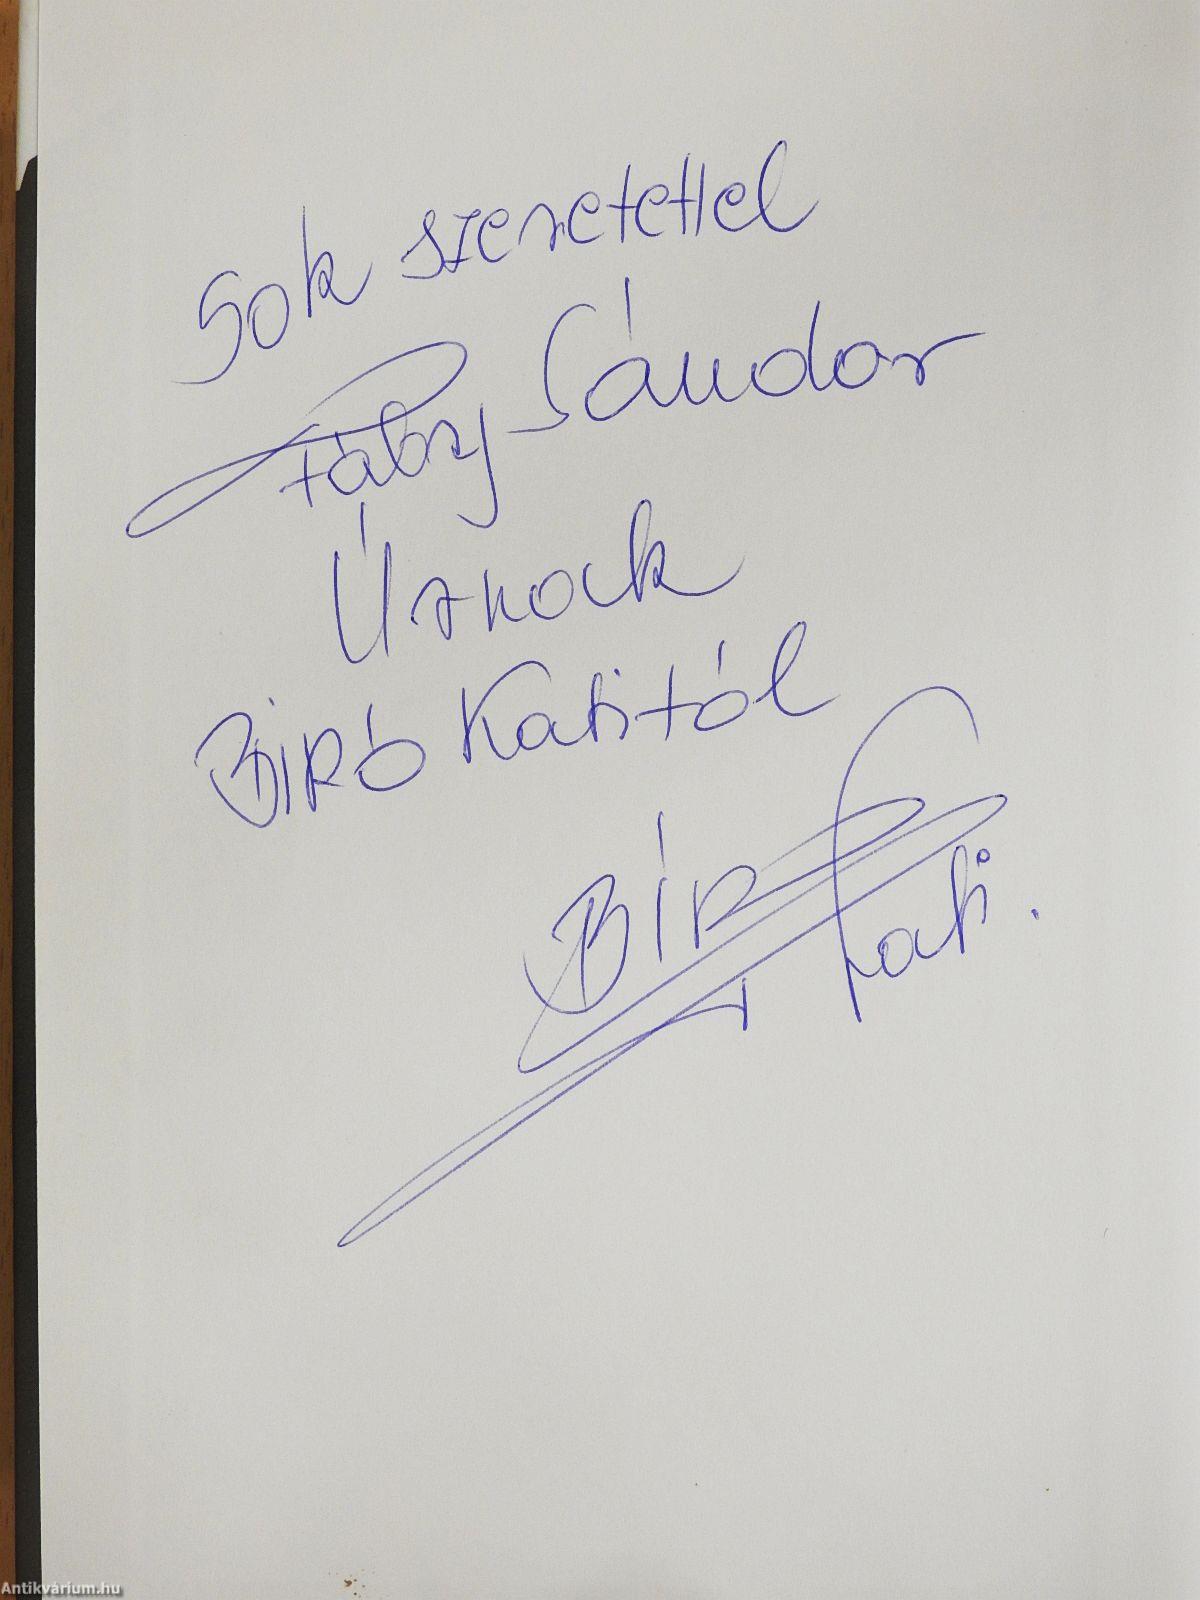 Sok szeretettel
Fáby Sándor
Úrnak
Biró Katitól
Bíró Kati.
Antikvárium.hu